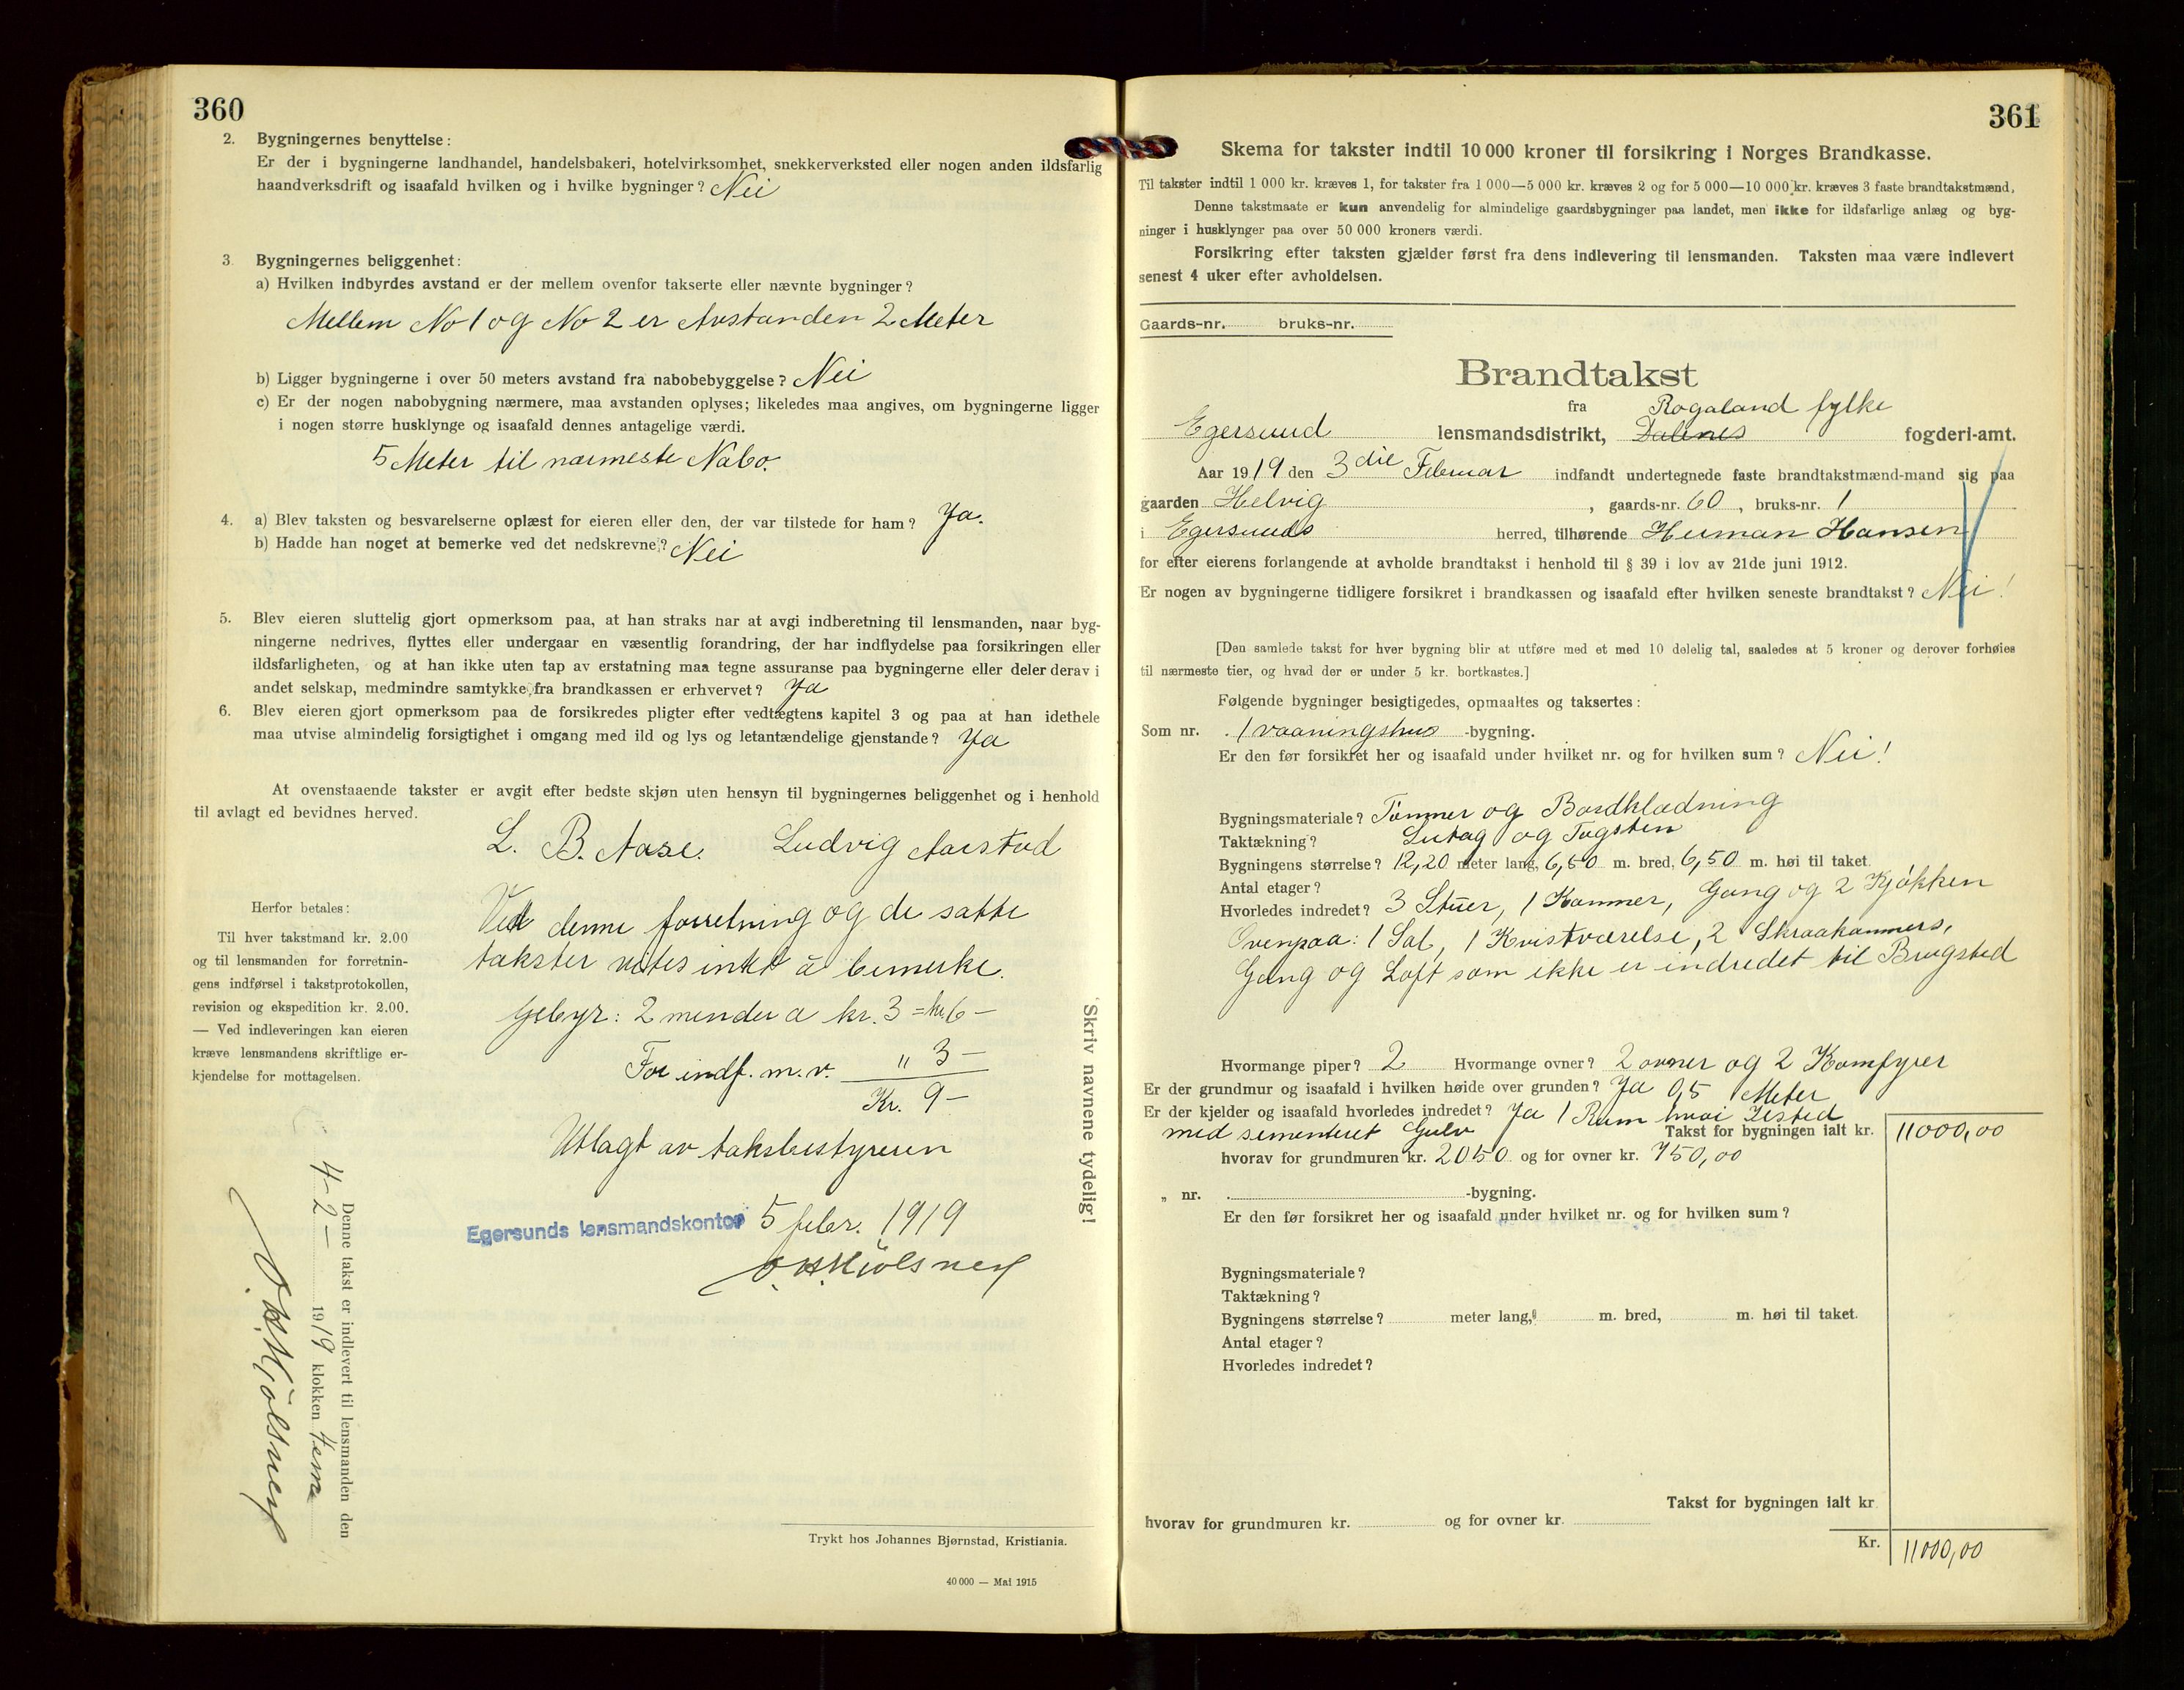 360
2. Bygningernes benyttelse:
Er der i bygningerne landhandel, handelsbakeri, hotelvirksomhet, snekkerverksted eller nogen anden ildsfarlig
haandverksdrift og isaafald hvilken og i hvilke bygninger? Nei
3. Bygningernes beliggenhet:
a) Hvilken indbyrdes avstand er der mellem ovenfor takserte eller nævnte bygninger?
Mellem No 1 og No 2 er Avstanden 2 Meter
b) Ligger bygningerne i over 50 meters avstand fra nabobebyggelse? Nei
c) Er der nogen nabobygning nærmere, maa avstanden oplyses; likeledes maa angives, om bygningerne ligger
i nogen større husklynge og isaafald dennes antagelige værdi.
5 Meter til nærmeste Nabo.
4. a) Blev taksten og besvarelserne oplæst for eieren eller den, der var tilstede for ham? Ja.
b) Hadde han noget at bemerke ved det nedskrevne? Nei
5. Blev eieren sluttelig gjort opmerksom paa, at han straks har at avgi indberetning til lensmanden, naar byg-
ningerne nedrives, flyttes eller undergaar en væsentlig forandring, der har indflydelse paa forsikringen eller
ildsfarligheten, og at han ikke uten tap av erstatning maa tegne assuranse paa bygningerne eller deler derav i
andet selskap, medmindre samtykke fra brandkassen er erhvervet? Ja
6. Blev eieren gjort opmerksom paa de forsikredes pligter efter vedtægtens kapitel 3 og paa at han idethele
maa utvise almindelig forsigtighet i omgang med ild og lys og letantændelige gjenstande? Ja
At ovenstaaende takster er avgit efter bedste skjøn uten hensyn til bygningernes beliggenhet og i henhold
til avlagt ed bevidnes herved.
L. B. Aase. Ludvig Aarstad
Herfor betales:
Til hver takstmand kr. 2.00
og til lensmanden for forretnin-
gens indførsel i takstprotokollen,
revision og ekspedition kr. 2.00.
— Ved indleveringen kan eieren
kræve lensmandens skriftlige er-
kjendelse for mottagelsen.
Ved denne forretning og de satte
takster vites intet å bemerke.
Gebyr: 2 mender a kr. 3 = kr. 6 —
For indf. m. v. " 3 —
Kr. 9 —
Utlagt av takstbestyreren
Egersunds lensmandskontor 5 febr. 1919
Skriv navnene tydelig!
Denne takst er indlevert til lensmanden den
4-2- 1919 klokken 4 em
Trykt hos Johannes Bjørnstad, Kristiania.
40 000 — Mai 1915
361
Skema for takster indtil 10 000 kroner til forsikring i Norges Brandkasse.
Til takster indtil 1 000 kr. kræves 1, for takster fra 1 000—5 000 kr. kræves 2 og for 5 000—10 000 kr. kræves 3 faste brandtakstmænd.
Denne takstmaate er kun anvendelig for almindelige gaardsbygninger paa landet, men ikke for ildsfarlige anlæg og byg-
ninger i husklynger paa over 50 000 kroners værdi.
Forsikring efter taksten gjælder først fra dens indlevering til lensmanden. Taksten maa være indlevert
senest 4 uker efter avholdelsen.
Gaards-nr. bruks-nr.
Brandtakst
fra Rogaland fylke
Egersund lensmandsdistrikt, Dalenes fogderi-amt.
Aar 1919 den 3die Februar indfandt undertegnede faste brandtakstmænd-mand sig paa
gaarden Helvig, gaards-nr. 60, bruks-nr. 1
i Egersunds herred, tilhørende Herman Hansen
for efter eierens forlangende at avholde brandtakst i henhold til § 39 i lov av 21de juni 1912.
Er nogen av bygningerne tidligere forsikret i brandkassen og isaafald efter hvilken seneste brandtakst? Nei!
[Den samlede takst for hver bygning blir at utføre med et med 10 delelig tal, saaledes at 5 kroner og derover forhøies
til nærmeste tier, og hvad der er under 5 kr. bortkastes.]
Følgende bygninger besigtigedes, opmaaltes og taksertes:
Som nr. 1 vaaningshus -bygning.
Er den før forsikret her og isaafald under hvilket nr. og for hvilken sum? Nei!
Bygningsmateriale? Tømmer og Bordklædning
Taktækning? Sutag og Tagsten
Bygningens størrelse? 12,20 meter lang, 6,50 m. bred, 6,50 m. høi til taket.
Antal etager?
Hvorledes indredet? 3 Stuer, 1 Kammer, Gang og 2 Kjøkken
Ovenpaa: 1 Sal, 1 Kvistværelse, 2 Skraakammers,
Gang og Loft som ikke er indredet til Brugsted
Hvormange piper? 2 Hvormange ovner? 2 ovner og 2 Komfyrer
Er der grundmur og isaafald i hvilken høide over grunden? Ja 0,5 Meter
Er der kjelder og isaafald hvorledes indredet? Ja 1 Rum hvori Ilsted
med sementeret Gulv Takst for bygningen ialt kr. 11000,00
hvorav for grundmuren kr. 2050 og for ovner kr. 750,00
„ nr. -bygning.
Er den før forsikret her og isaafald under hvilket nr. og for hvilken sum?
Bygningsmateriale?
Taktækning?
Bygningens størrelse? meter lang, m. bred, m. høi til taket.
Antal etager?
Hvorledes indredet?
Takst for bygningen ialt kr.
hvorav for grundmuren kr. og for ovner kr.
Kr. 11000,00